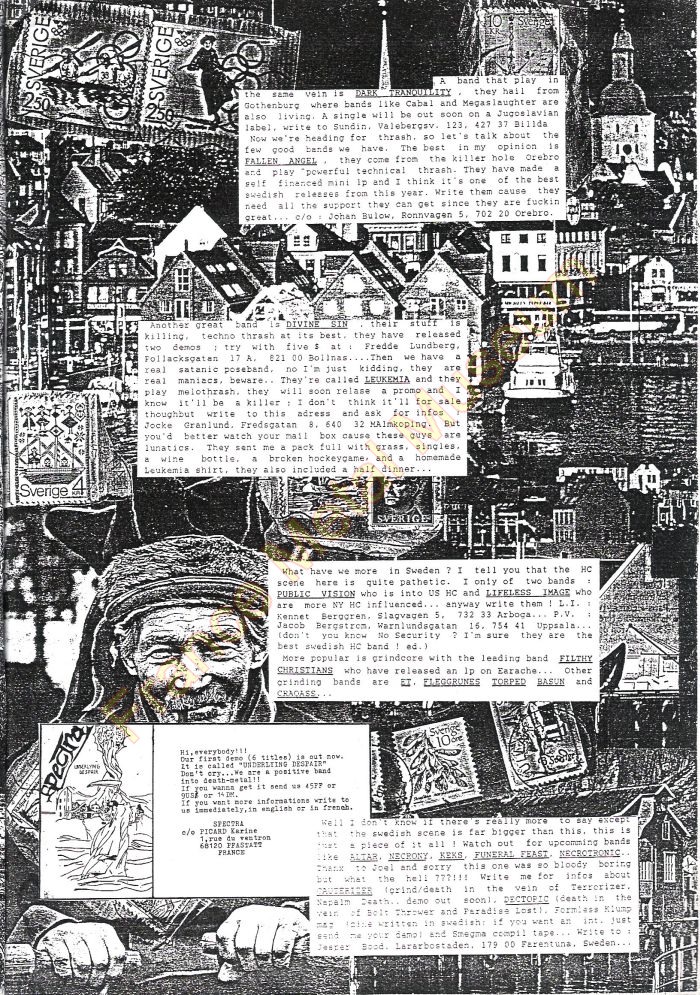 SVERIGE
2.50
SVERIGE
2.50
10 KR
Sverige
A band that play in
the same vein is DARK TRANQUILITY , they hail from
Gothenburg where bands like Cabal and Megaslaughter are
also living. A single will be out soon on a Jugoslavian
label, write to Sundin, Valebergsv. 123, 427 37 Billda
Now we're heading for thrash, so let's talk about the
few good bands we have. The best in my opinion is
FALLEN ANGEL , they come from the killer hole Orebro
and play powerful technical thrash. They have made a
self financed mini lp and I think it's one of the best
swedish releases from this year. Write them cause they
need all the support they can get since they are fuckin
great... c/o : Johan Bulow, Ronnvagen 5, 702 20 Orebro.
Another great band is DIVINE SIN , their stuff is
killing, techno thrash at its best, they have released
two demos ; try with five $ at : Fredde Lundberg,
Pollacksgatan 17 A, 821 00 Bollnas....Then we have a
real satanic poseband, no I'm just kidding, they are
real maniacs, beware.. They're called LEUKEMIA and they
play melothrash, they will soon relase a promo and I
know it'll be a killer ; I don't think it'll for sale
thoughbut write to this adress and ask for infos :
Jocke Granlund, Fredsgatan 8, 640 32 MAlmkoping. But
you'd better watch your mail box cause these guys are
lunatics. They sent me a pack full with grass, singles,
a wine bottle, a broken hockeygame and a homemade
Leukemia shirt, they also included a half dinner...
Sverige 4
SVERIGE
What have we more in Sweden ? I tell you that the HC
scene here is quite pathetic. I only of two bands :
PUBLIC VISION who is into US HC and LIFELESS IMAGE who
are more NY HC influenced... anyway write them ! L.I. :
Kennet Berggren, Slagvagen 5, 732 33 Arboga... P.V. :
Jacob Bergstrom, Warnlundsgatan 16, 754 41 Uppsala...
(don't you know No Security ? I'm sure they are the
best swedish HC band ! ed.)
More popular is grindcore with the leading band FILTHY
CHRISTIANS who have released an lp on Earache... Other
grinding bands are ET, FLEGGRUNES TORPED BASUN and
CHAOASS...
Spectra
UNDERLYING
DESPAIR
Hi,everybody!!!
Our first demo (6 titles) is out now.
It is called "UNDERLYING DESPAIR"
Don't cry...We are a positive band
into death-metal!!
If you wanna get it send us 45FF or
9US$ or 14DM.
If you want more informations write to
us immediately,in english or in french.
SPECTRA
c/o PICARD Karine
1,rue du ventron
68120 PFASTATT
FRANCE
Well I don't know if there's really more to say except
that the swedish scene is far bigger than this, this is
just a piece of it all ! Watch out for upcomming bands
like ALTAR, NECRONY, KEKS, FUNERAL FEAST, NECROTRONIC..
Thanx to Joel and sorry this one was so bloody boring
but what the hell ???!!! Write me for infos about
CAUTERIZER (grind/death in the vein of Terrorizer,
Napalm Death.. demo out soon), DECTOPIC (death in the
vein of Bolt Thrower and Paradise Lost), Formless Klump
mag (zine written in swedish; if you want an int. just
send me your demo) and Smegma compil tape... Write to :
Jesper Bood, Lararbostaden, 179 00 Farentuna, Sweden...
France Metal Museum